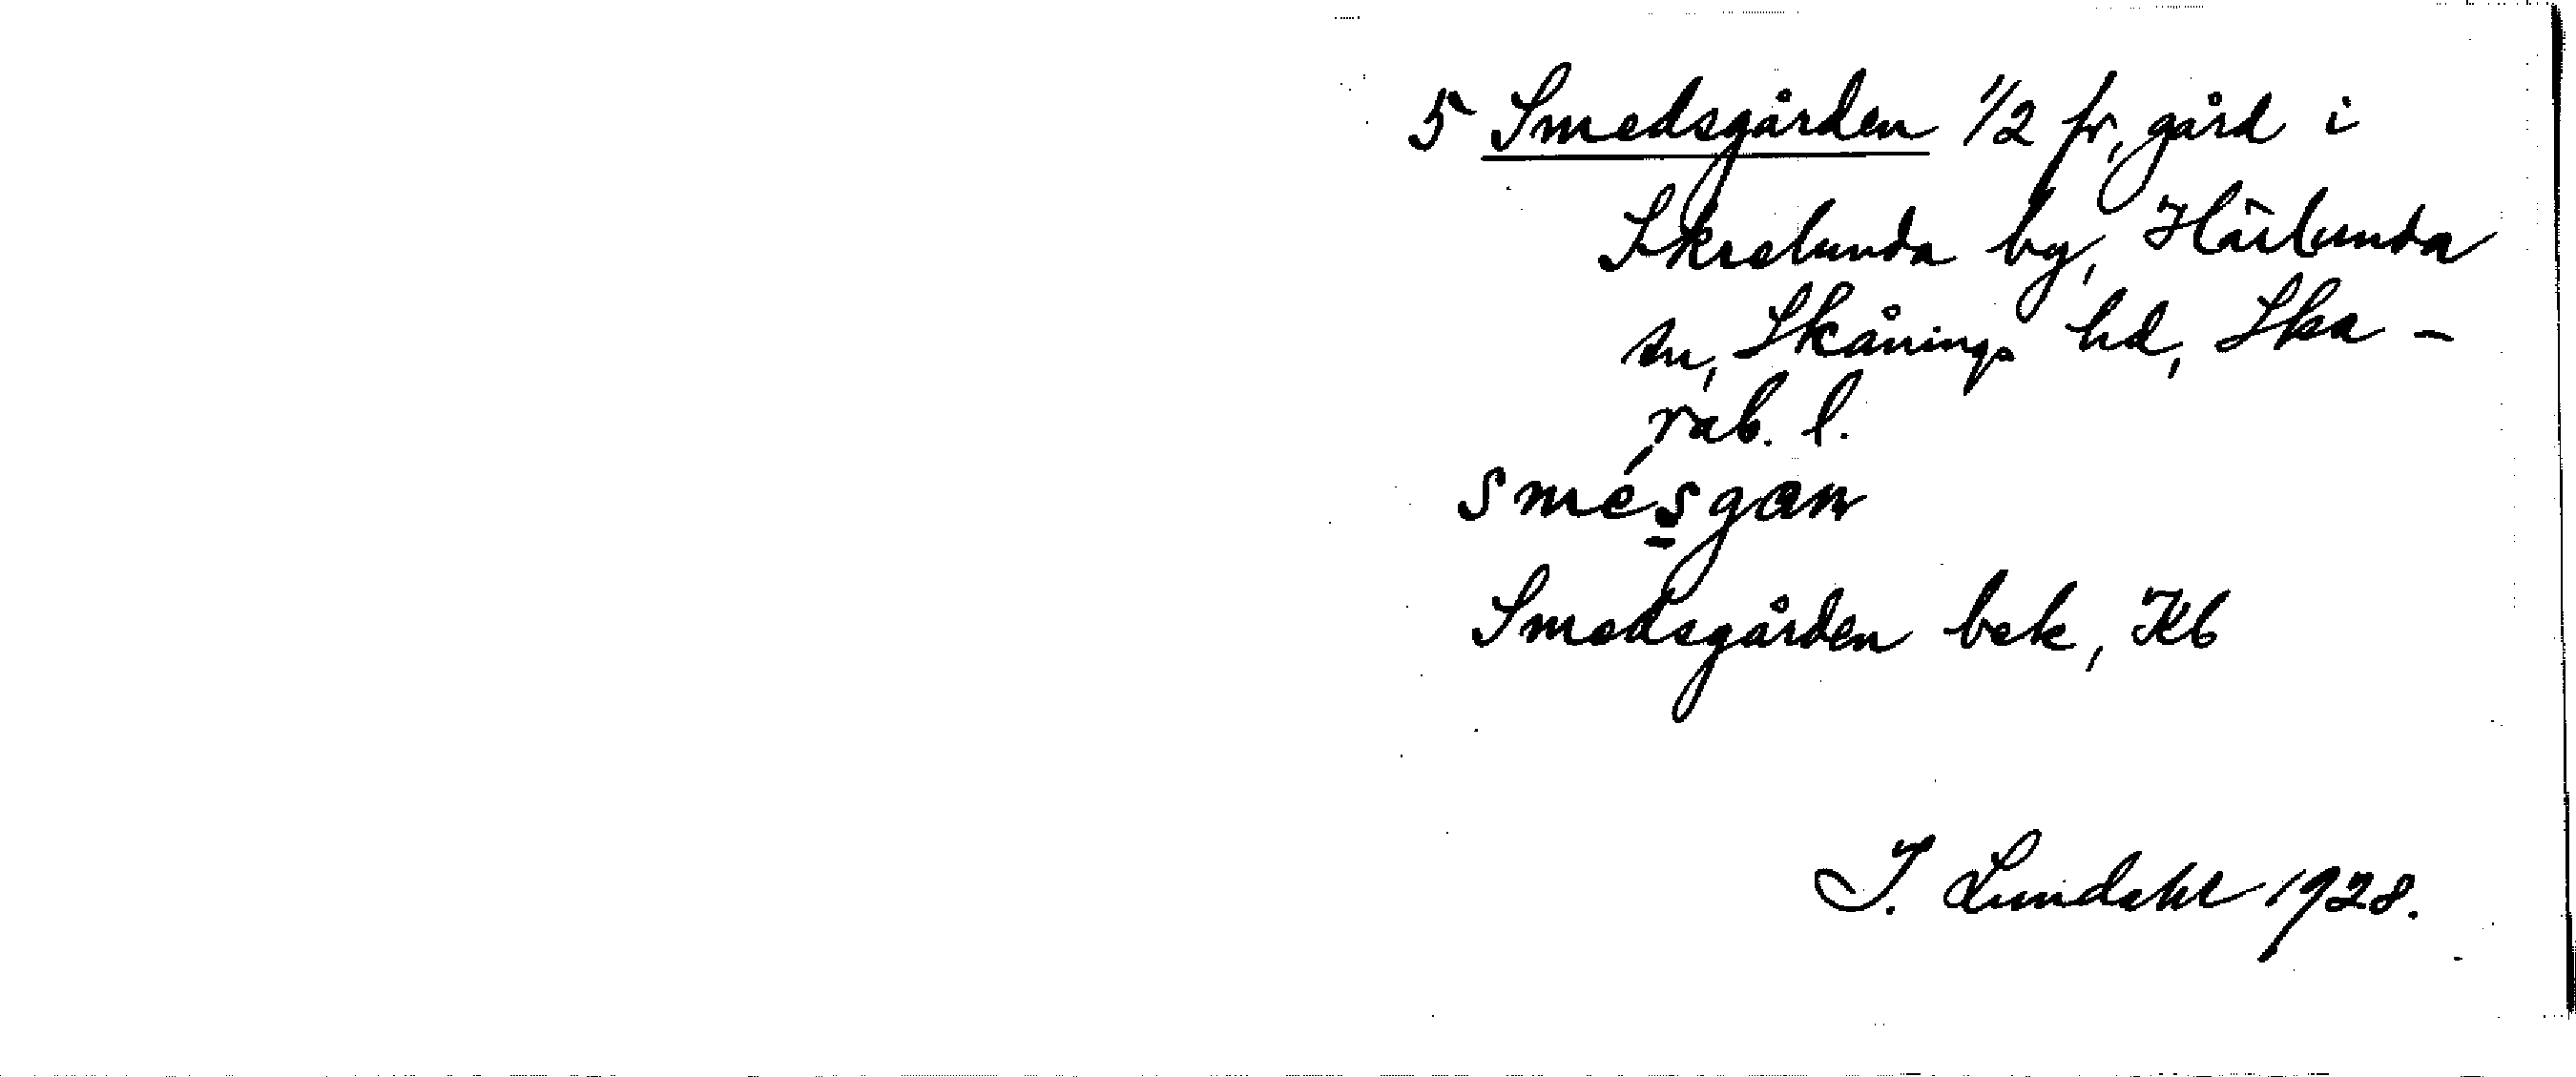 5 Smedsgården 1/2 fr, gård i
Skrelunda by, Härlunda
sn, Skånings hd, Ska-
rab. l.
smésgan
Smedsgården bek, Kb
I. Lundahl 1928.